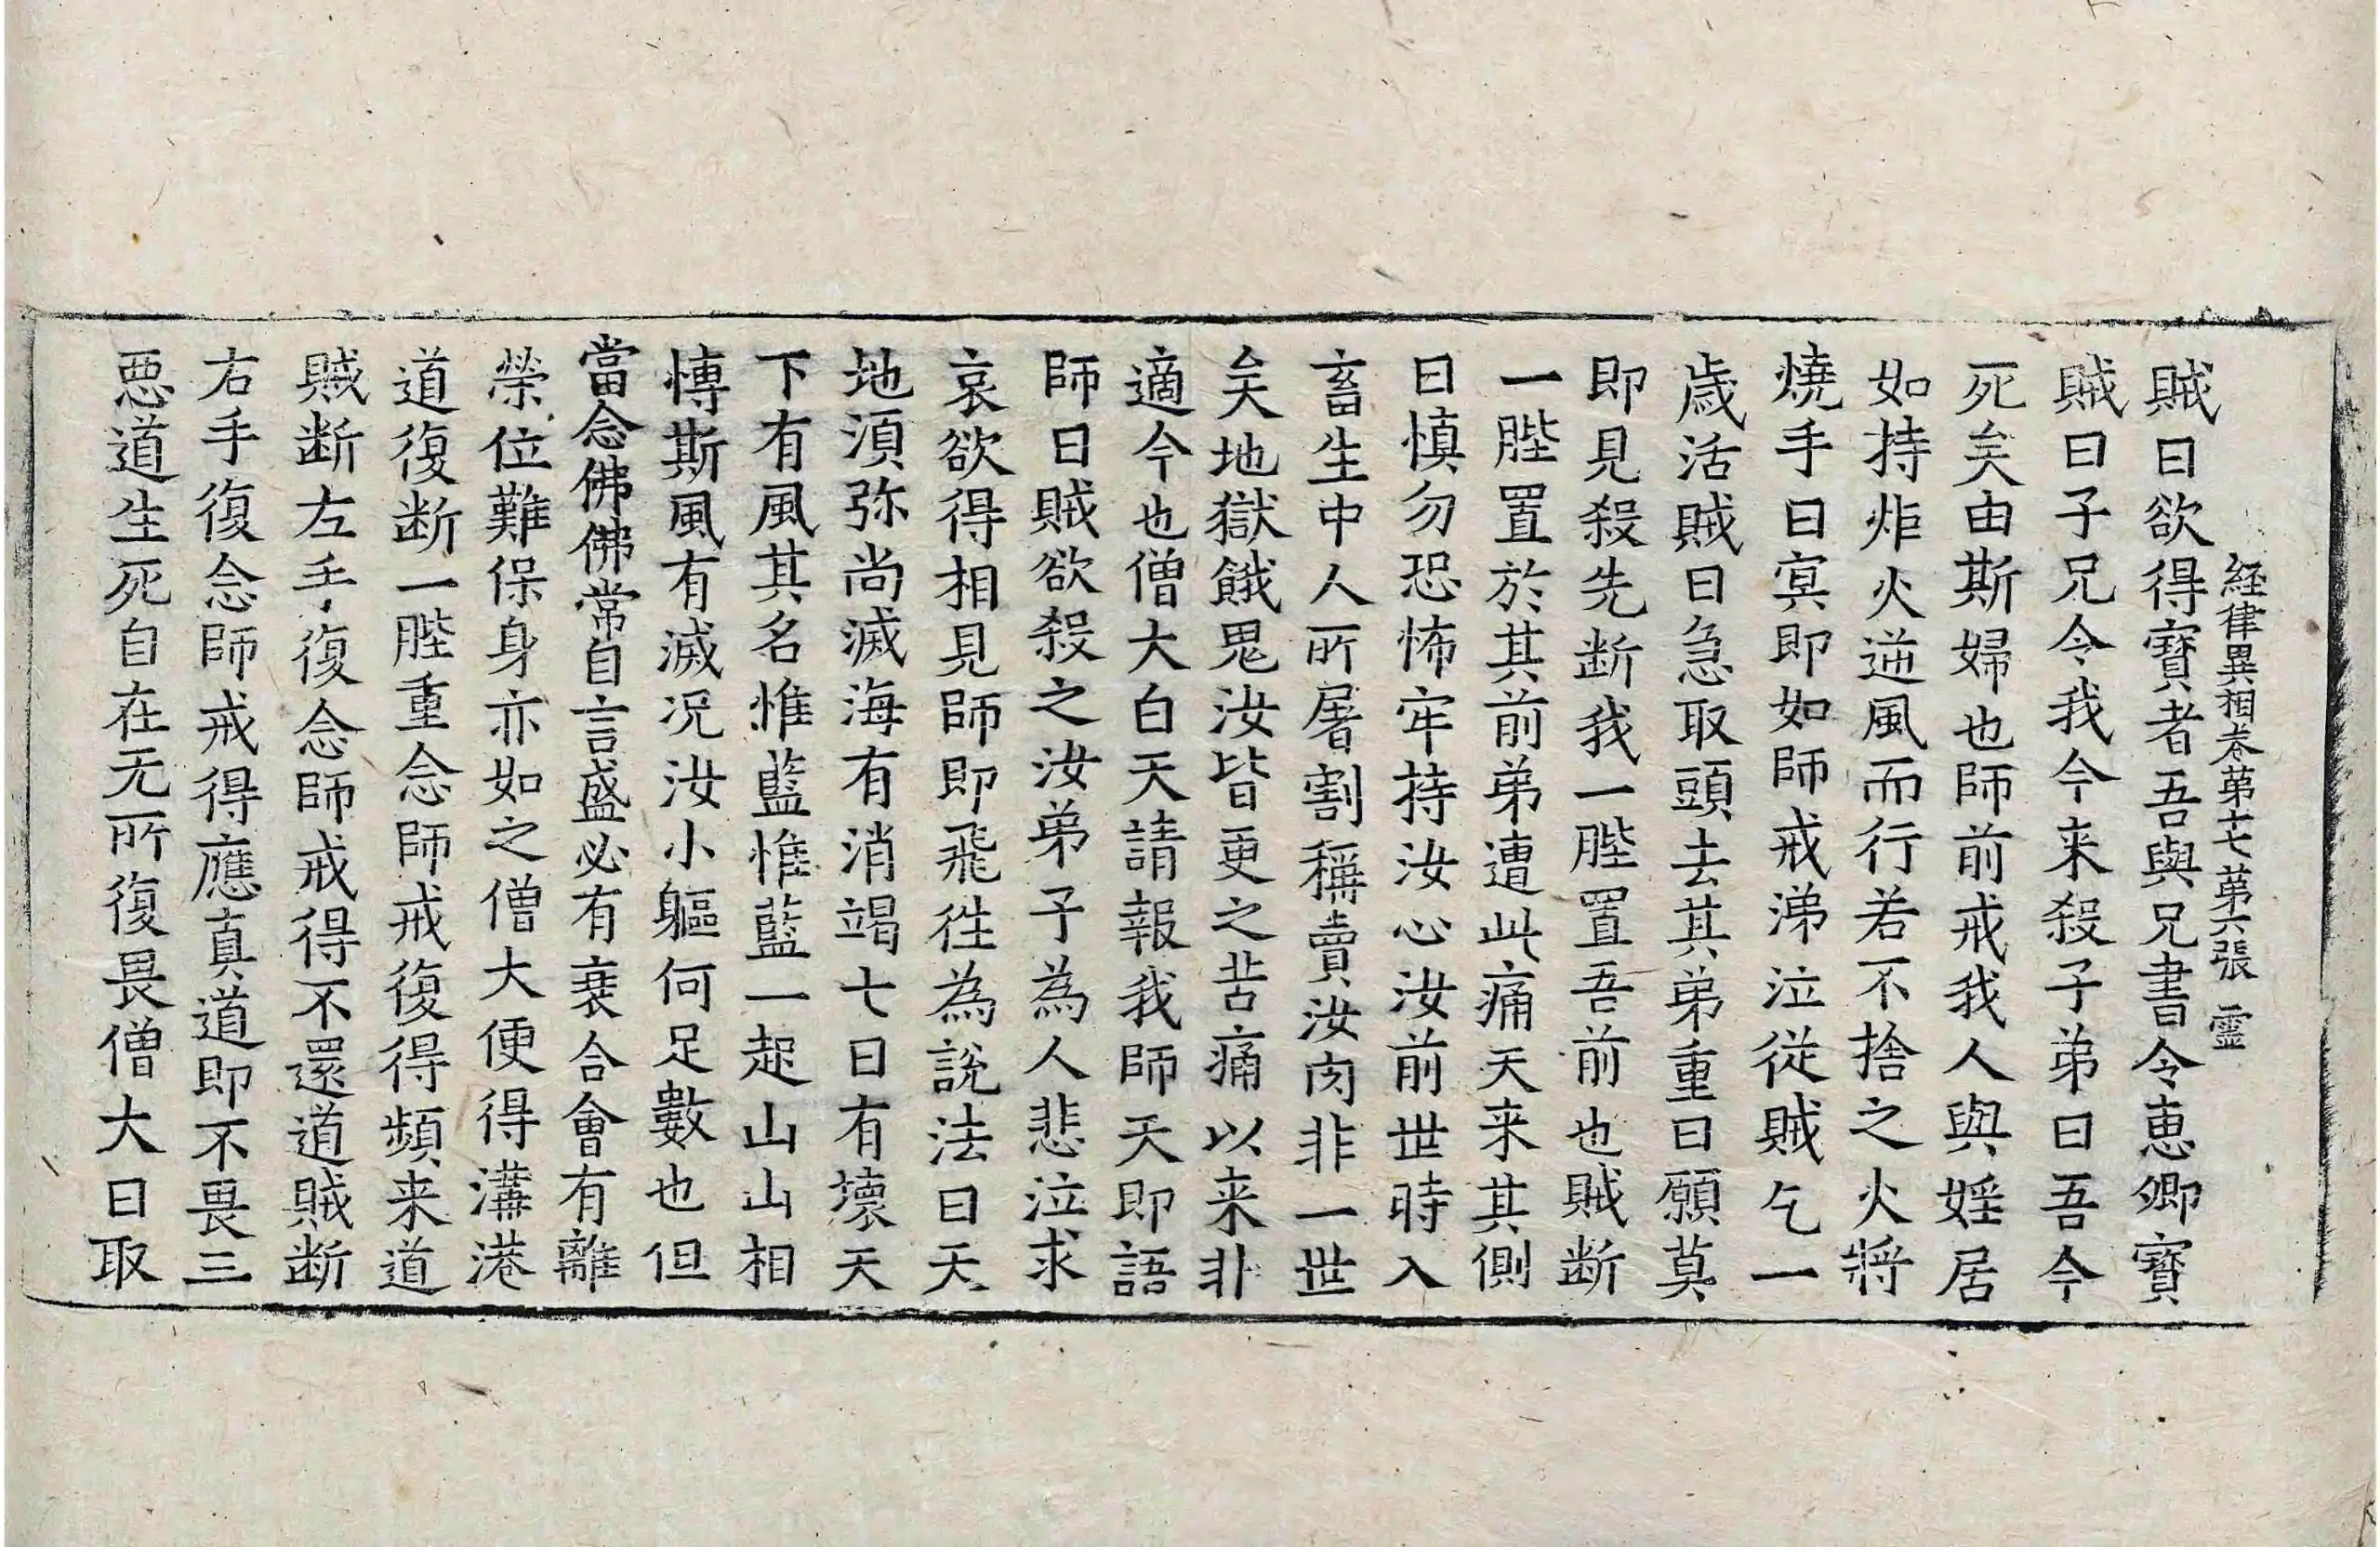 経律異相卷第十七 第六張 靈
賊曰欲得寶者吾與兄書令恵卿寶
賊曰子兄令我今来殺子弟曰吾今
死矣由斯婦也師前戒我人與婬居
如持炬火逆風而行若不捨之火將
燒手曰㝠即如師戒涕泣從賊乞一
歲活賊曰急取頭去其弟重曰願莫
即見殺先断我一䏶置吾前也賊断
一䏶置於其前弟遭此痛天来其側
曰慎勿恐怖牢持汝心汝前世時入
畜生中人所屠割稱賣汝肉非一世
矣地獄餓鬼汝皆更之苦痛以来非
適今也僧大白天請報我師天即語
師曰賊欲殺之汝弟子為人悲泣求
哀欲得相見師即飛徃為說法曰天
地湏弥尚滅海有消竭七日有壞天
下有風其名惟藍惟藍一起山山相
慱斯風有滅况汝小軀何足數也但
當念佛佛常自言盛必有衰合會有離
榮位難保身亦如之僧大便得溝港
道復断一䏶重念師戒復得頻来道
賊断左手復念師戒得不還道賊断
右手復念師戒得應真道即不畏三
惡道生死自在无所復畏僧大曰取